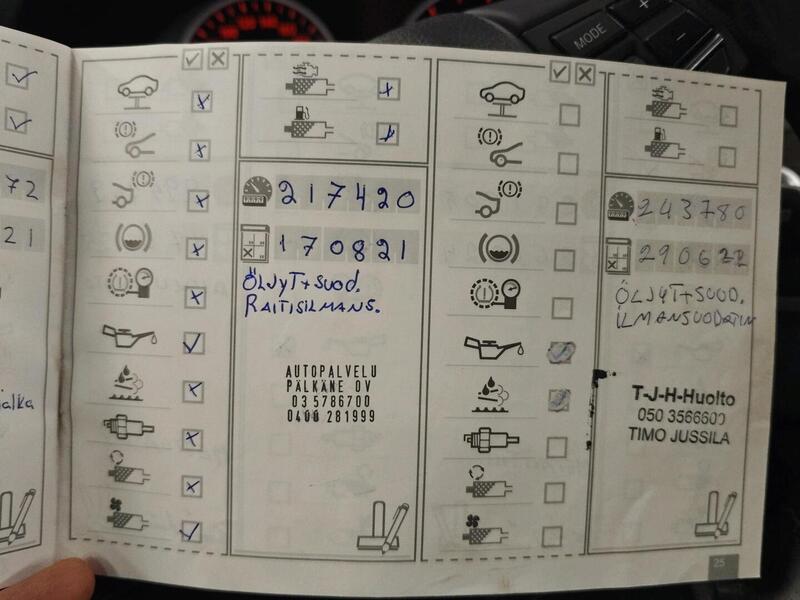 MODE
72
21
alka
217420
170821
ÖLJYT+SUOD.
RAITISILMANS.
AUTOPALVELU
PÄLKÄNE OY
03 5786700
0400 281999
243780
290622
ÖLJYT+SUOD.
ILMANSUODATIN
T-J-H-Huolto
050 3566600
TIMO JUSSILA
25